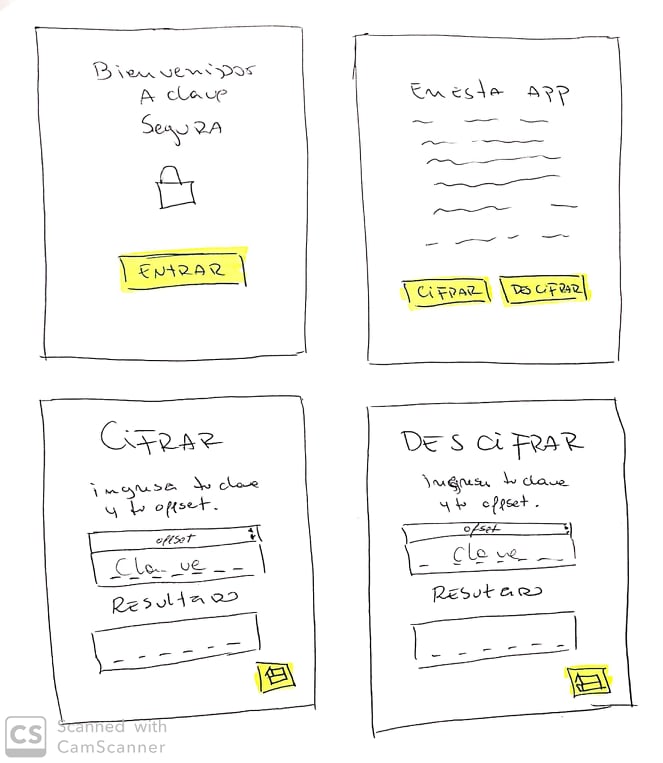 Bienvenidos
A clave
Segura
ENTRAR
En esta APP
CIFRAR
DESCIFRAR
CIFRAR
ingresa tu clave
y tu offset.
offset
Clave
RESultado
DESCIFRAR
Ingresa tu clave
y tu offset.
ofset
Clave
RESutado
CS
Scanned with
CamScanner